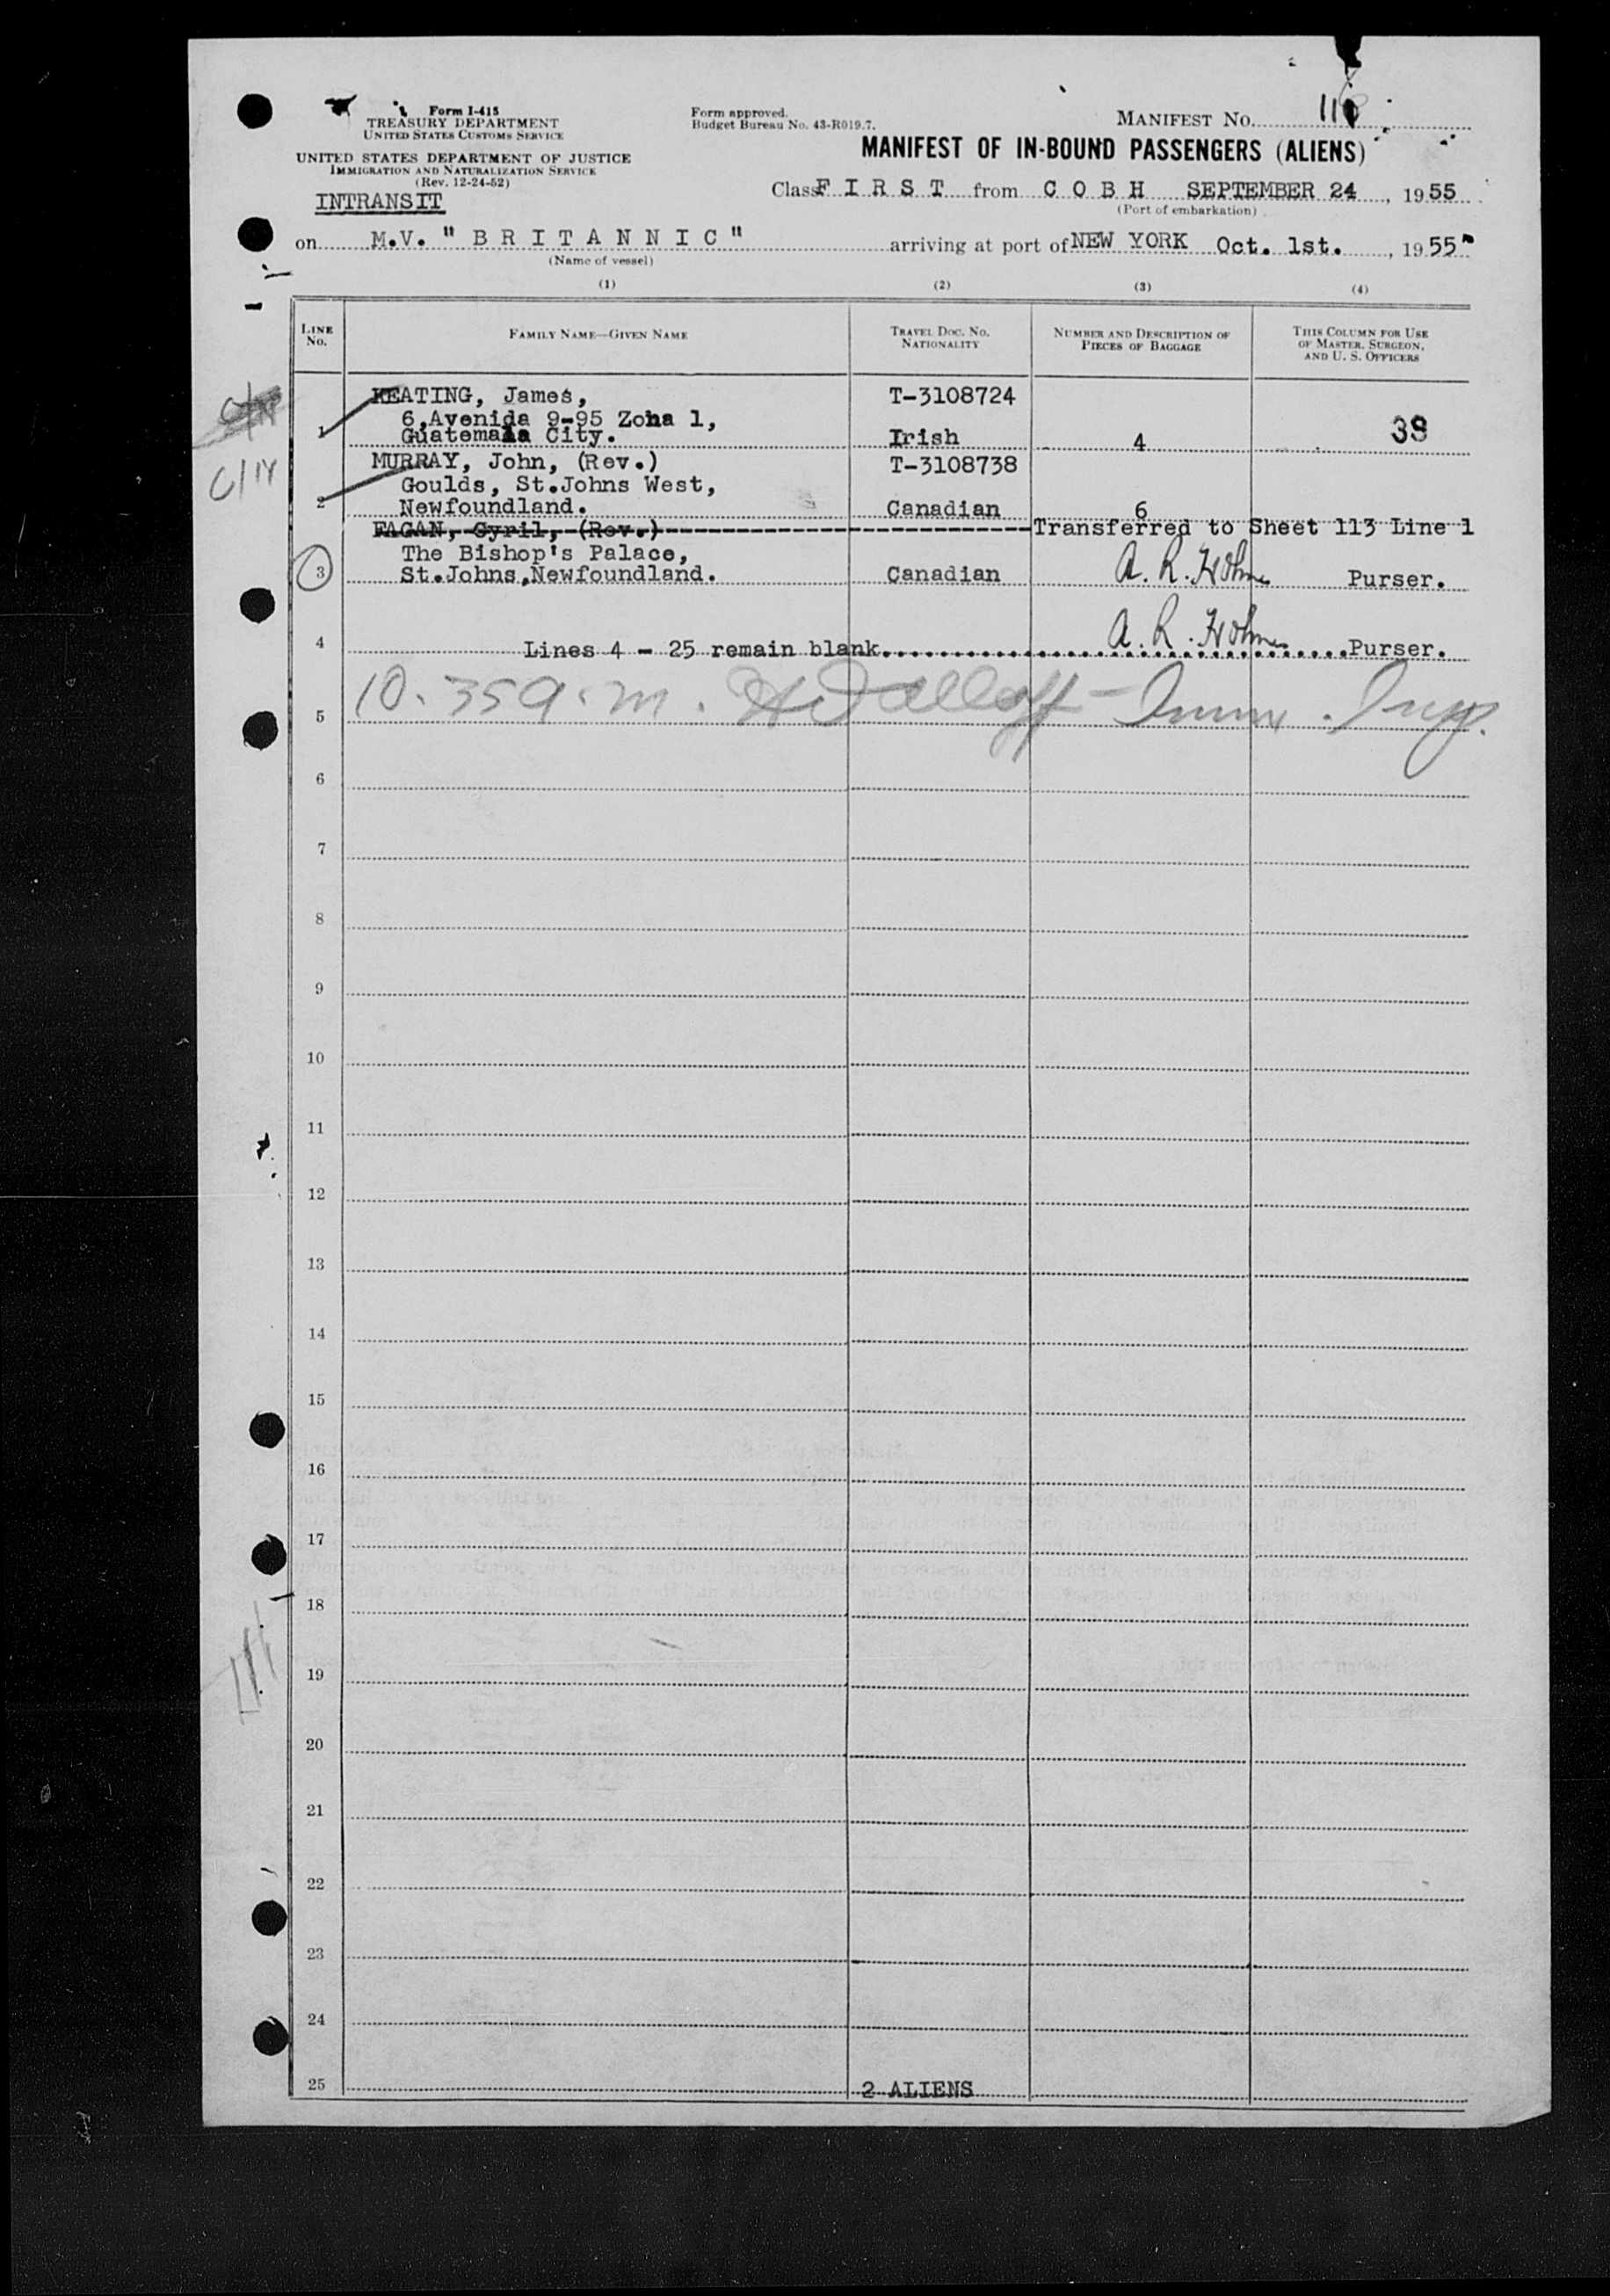 Form I-415
TREASURY DEPARTMENT
UNITED STATES CUSTOMS SERVICE
UNITED STATES DEPARTMENT OF JUSTICE
IMMIGRATION AND NATURALIZATION SERVICE
(Rev. 12-24-52)
INTRANSIT
Form approved.
Budget Bureau No. 43-R019.7.
MANIFEST No.
MANIFEST OF IN-BOUND PASSENGERS (ALIENS)
Class FIRST from COBH SEPTEMBER 24, 1955
(Port of embarkation)
on M.V. "BRITANNIC" arriving at port of NEW YORK Oct. 1st., 1955
(Name of vessel)
(1) (2) (3) (4)
LINE No. FAMILY NAME—GIVEN NAME TRAVEL DOC. NO. NATIONALITY NUMBER AND DESCRIPTION OF PIECES OF BAGGAGE THIS COLUMN FOR USE OF MASTER, SURGEON, AND U. S. OFFICERS
KEATING, James, T-3108724
6,Avenida 9-95 Zona 1,
1 Guatemala City. Irish 4 39
MURRAY, John, (Rev.) T-3108738
Goulds, St.Johns West,
2 Newfoundland. Canadian 6
FAGAN, Cyril, (Rev.) Transferred to Sheet 113 Line 1
The Bishop's Palace,
3 St.Johns,Newfoundland. Canadian A. R. Holme Purser.
4 Lines 4 - 25 remain blank. A. R. Holme Purser.
5 10.35 a.m. Imm. Insp.
6
7
8
9
10
11
12
13
14
15
16
17
18
19
20
21
22
23
24
25 2 ALIENS